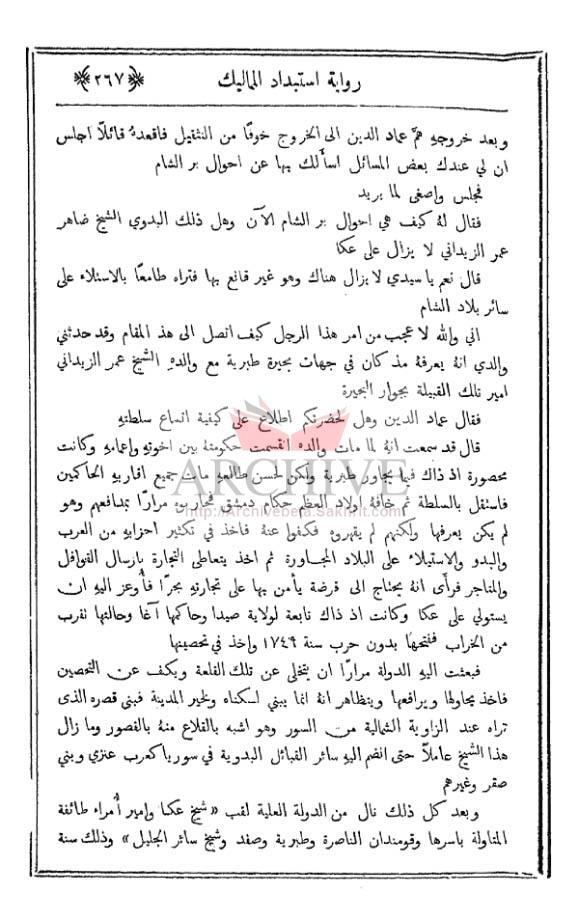 رواية استبداد المماليك
﴿٢٦٧﴾
وبعد خروجهِ همَّ عماد الدين الى الخروج خوفًا من التثقيل فاقعدهُ قائلاً اجلس
ان لي عندك بعض المسائل اسأَلك بها عن احوال بر الشام
فجلس واصغى لما يريد
فقال لهُ كيف هي احوال بر الشام الآن وهل ذلك البدوي الشيخ ضاهر
عمر الزيداني لا يزال على عكا
قال نعم يا سيدي لا يزال هناك وهو غير قانع بها فتراه طامعًا بالاستلاء على
سائر بلاد الشام
اني والله لاعجب من امر هذا الرجل كيف اتصل الى هذ المقام وقد حدثني
والدي انهُ يعرفهُ مذ كان في جهات بحيرة طبرية مع والدهِ الشيخ عمر الزيداني
امير تلك القبيلة بجوار البحيرة
فقال عماد الدين وهل لحضرتكم اطلاع على كيفية اتساع سلطتهِ
قال قد سمعت انهُ لما مات والده انقسمت حكومتهُ بين اخوتهِ واعمامهِ وكانت
محصورة اذ ذاك فيما يجاور طبرية ولكن لحسن طالعهِ مات جميع اقاربهِ الحاكمين
فاستقل بالسلطة ثم خافهُ اولاد العظم حكام دمشق فحاربوه مرارًا بمدافعهم وهو
لم يكن يعرفها ولكنهم لم يقهروه فكفوا عنهُ فاخذ في تكثير احزابهِ من العرب
والبدو والاستيلاء على البلاد المجاورة ثم اخذ يتعاطى التجارة بارسال القوافل
والمتاجر فرأَى انهُ يحتاج الى فرضة يأمن بها على تجارتهِ بحرًا فأُوعز اليهِ ان
يستولي على عكا وكانت اذ ذاك تابعة لولاية صيدا وحاكمها آغا وحالتها تقرب
من الخراب ففتحها بدون حرب سنة ١٧٤٩ واخذ في تحصينها
فبعثت اليهِ الدولة مرارًا ان يتخلى عن تلك القلعة ويكف عن التحصين
فاخذ يحاولها ويرافعها ويتظاهر انهُ انما يبني لسكناه ولخير المدينة فبنى قصره الذى
تراه عند الزاوية الشمالية من السور وهو اشبه بالقلاع منهُ بالقصور وما زال
هذا الشيخ عاملاً حتى انضم اليهِ سائر القبائل البدوية في سوريا كعرب عنزي وبني
صقر وغيرهم
وبعد كل ذلك نال من الدولة العلية لقب «شيخ عكا وامير أُمراء طائفة
المتاولة باسرها وقومندان الناصرة وطبرية وصفد وشيخ سائر الجليل» وذلك سنة
ARCHIVE
http://Archivebeta.Sakhrit.com